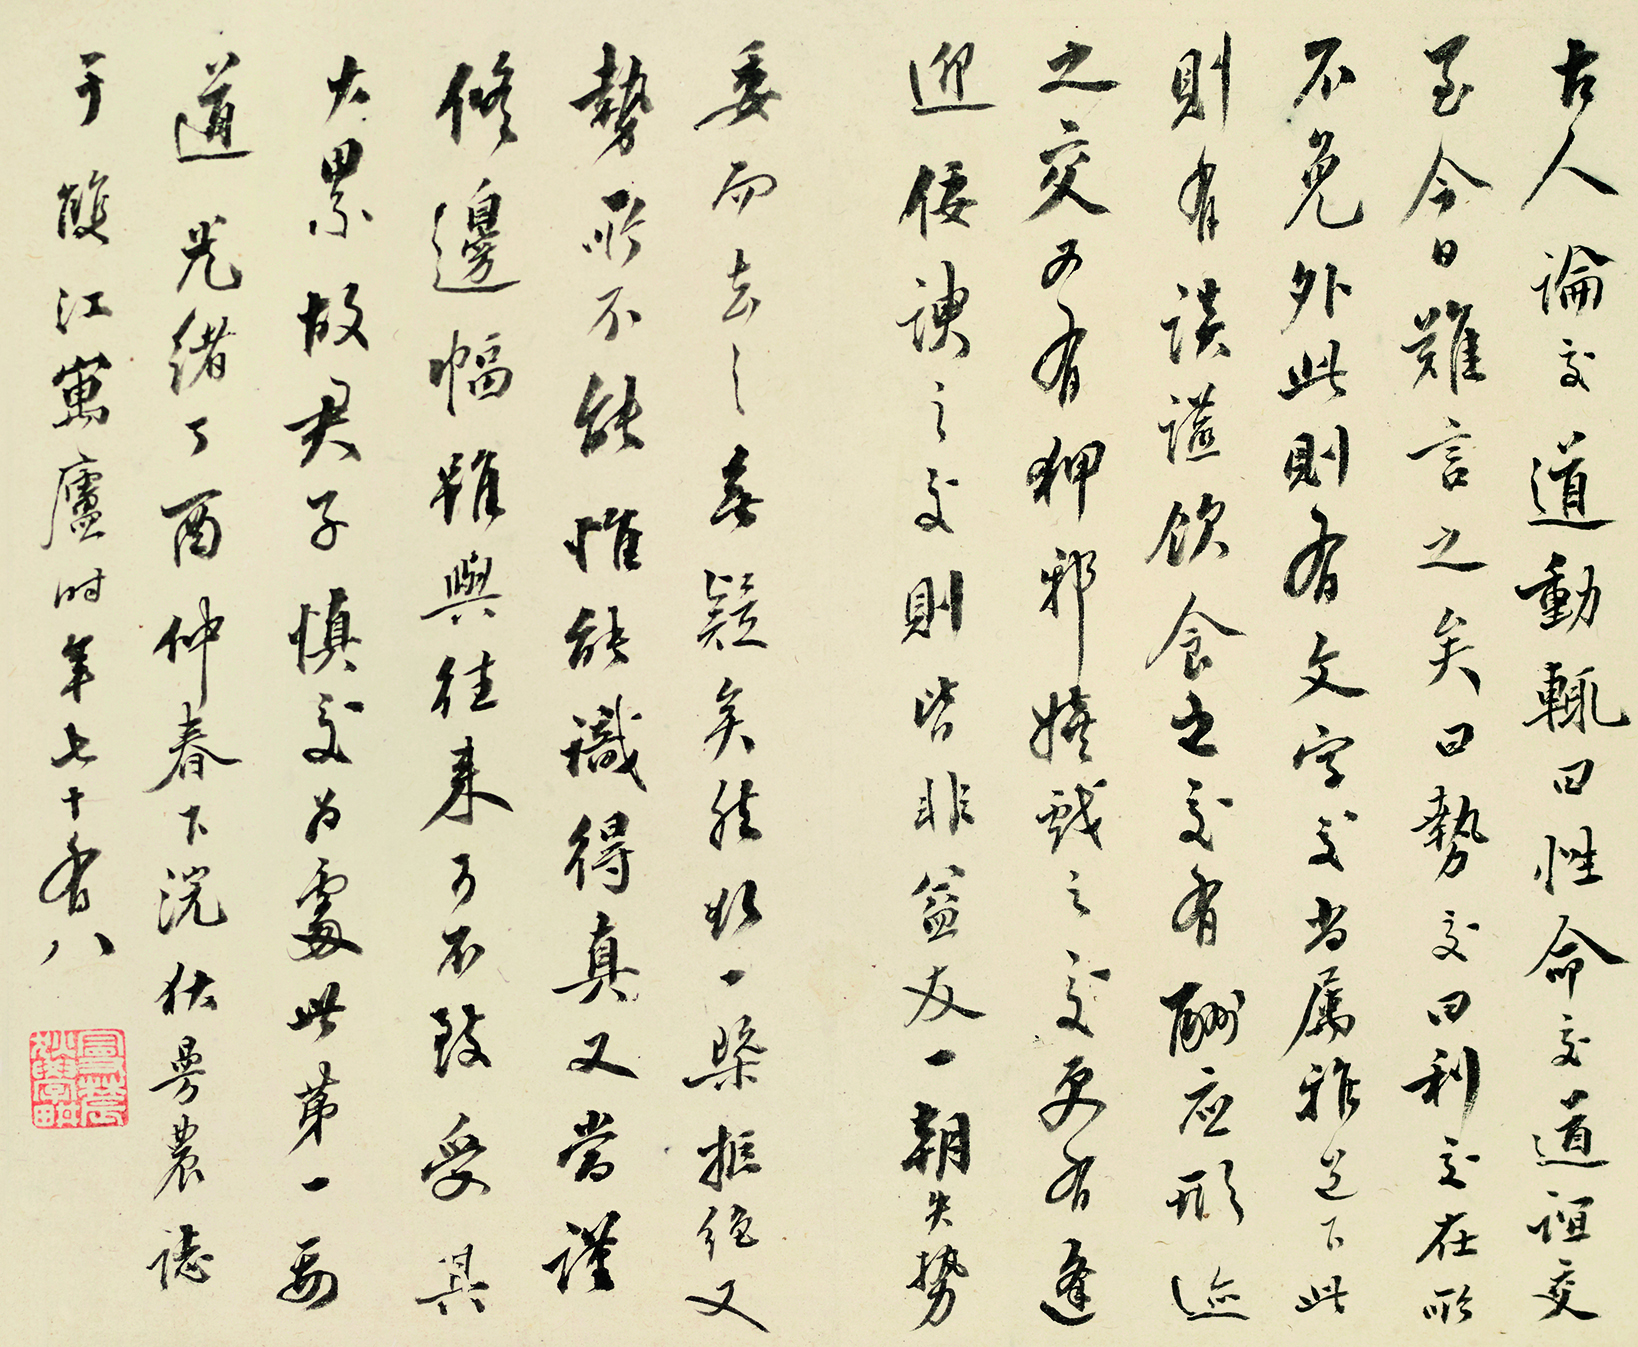 古人論交道動輒曰性命交道誼交
至今日難言之矣曰勢交曰利交在所
不免外此則有文字交尚屬雅道下此
則有談讌飲食之交有酬应形迹
之交又有狎邪嬉戲之交更有逢
迎佞諛之交則皆非益友一朝失勢
委而去之無疑矣然欲一槩拒絕又
勢所不能惟能識得真又當謹
修邊幅雖與往來可不致受其
大累故君子慎交为處世第一要
道光緒丁酉仲春下浣秋曼農誌
于雙江寓廬时年七十有八